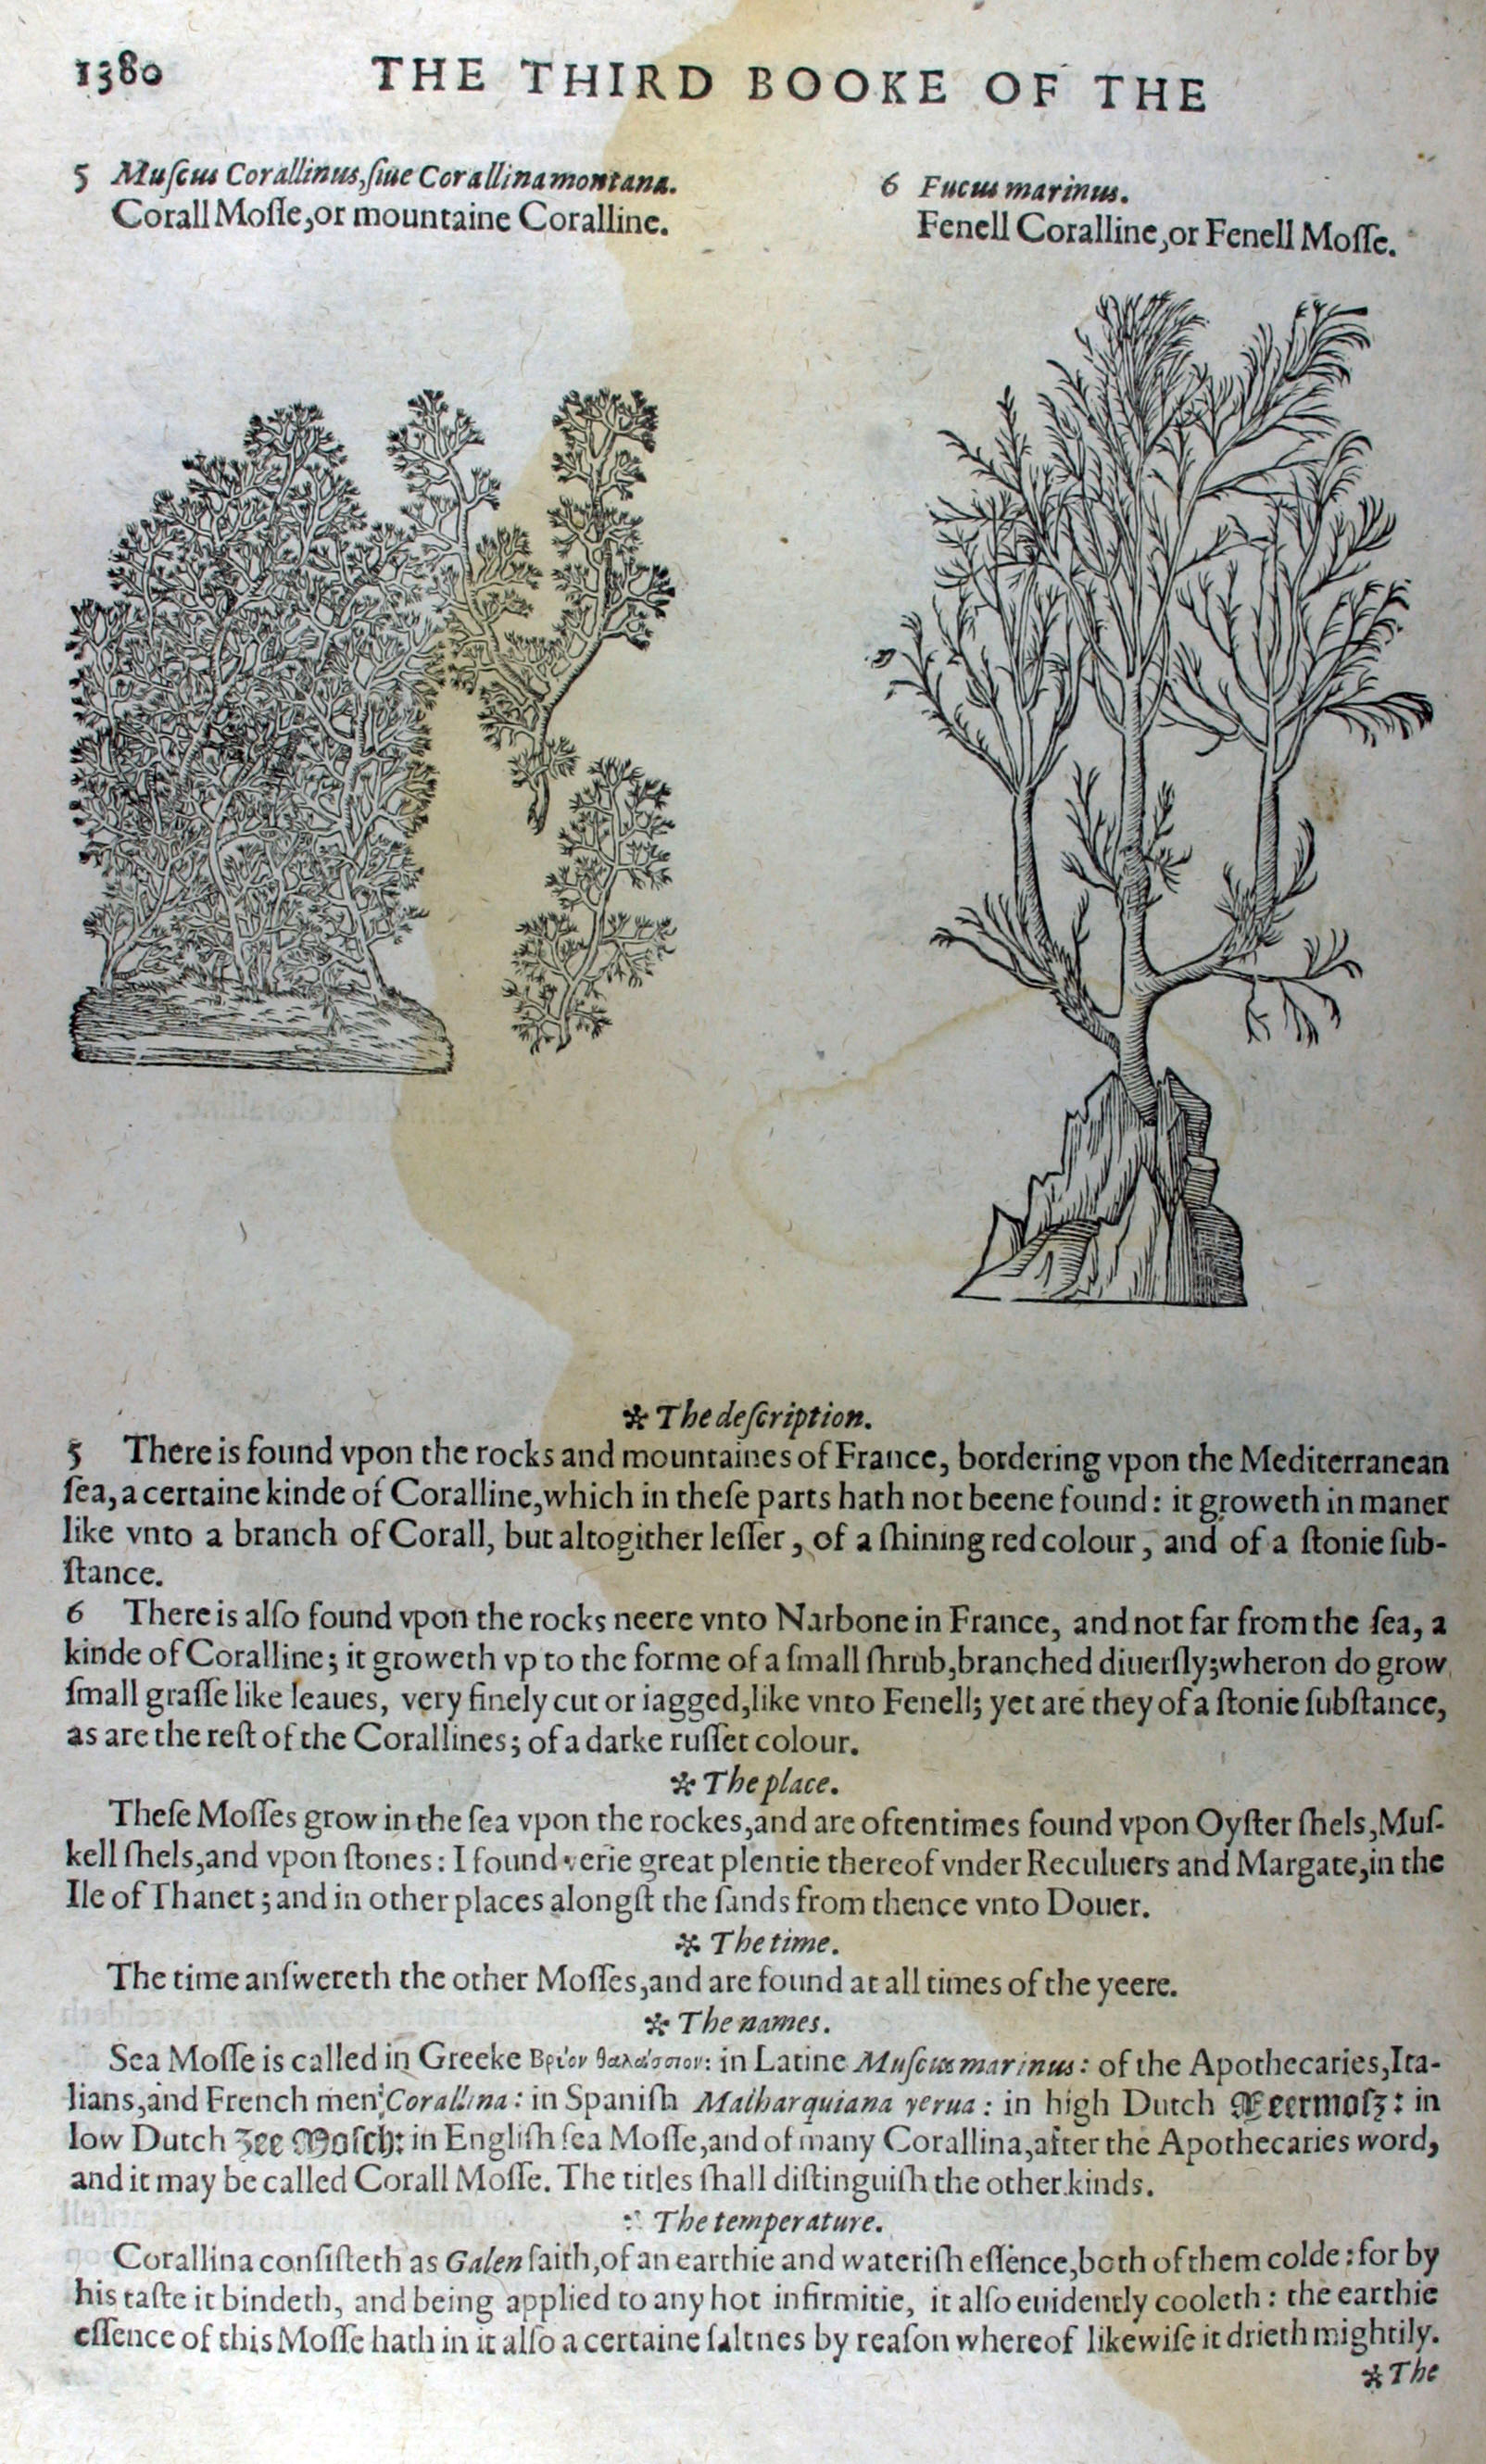 1380
THE THIRD BOOKE OF THE
5 Muſcus Corallinus, ſiue Corallina montana.
Corall Moſſe, or mountaine Coralline.
6 Fucus marinus.
Fenell Coralline, or Fenell Moſſe.
✻ The deſcription.
5 There is found vpon the rocks and mountaines of France, bordering vpon the Mediterranean
ſea, a certaine kinde of Coralline, which in theſe parts hath not beene found: it groweth in maner
like vnto a branch of Corall, but altogither leſſer, of a ſhining red colour, and of a ſtonie ſub-
ſtance.
6 There is alſo found vpon the rocks neere vnto Narbone in France, and not far from the ſea, a
kinde of Coralline; it groweth vp to the forme of a ſmall ſhrub, branched diuerſly; wheron do grow
ſmall graſſe like leaues, very finely cut or iagged, like vnto Fenell; yet are they of a ſtonie ſubſtance,
as are the reſt of the Corallines; of a darke ruſſet colour.
✻ The place.
Theſe Moſſes grow in the ſea vpon the rockes, and are oftentimes found vpon Oyſter ſhels, Muſ-
kell ſhels, and vpon ſtones: I found verie great plentie thereof vnder Reculuers and Margate, in the
Ile of Thanet; and in other places alongſt the ſands from thence vnto Douer.
✻ The time.
The time anſwereth the other Moſſes, and are found at all times of the yeere.
✻ The names.
Sea Moſſe is called in Greeke Βρύον θαλάσσιον: in Latine Muſcus marinus: of the Apothecaries, Ita-
lians, and French men Corallina: in Spaniſh Malharquiana yerua: in high Dutch Meermoſz: in
low Dutch Zee Moſch: in Engliſh ſea Moſſe, and of many Corallina, after the Apothecaries word,
and it may be called Corall Moſſe. The titles ſhall diſtinguiſh the other kinds.
The temperature.
Corallina conſiſteth as Galen ſaith, of an earthie and wateriſh eſſence, both of them colde: for by
his taſte it bindeth, and being applied to any hot infirmitie, it alſo euidently cooleth: the earthie
eſſence of this Moſſe hath in it alſo a certaine ſaltnes by reaſon whereof likewiſe it drieth mightily.
✻ The